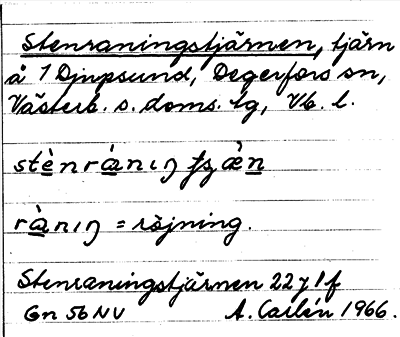 Stenraningstjärnen, tjärn
å 1 Djupsund, Degerfors sn,
Västerb. s. doms. tg, Vb. l.
stènrànıŋ
rànıŋ = röjning.
Stenraningstjärnen 22 y 1 f
Gn 56 NV A. Carlén 1966.